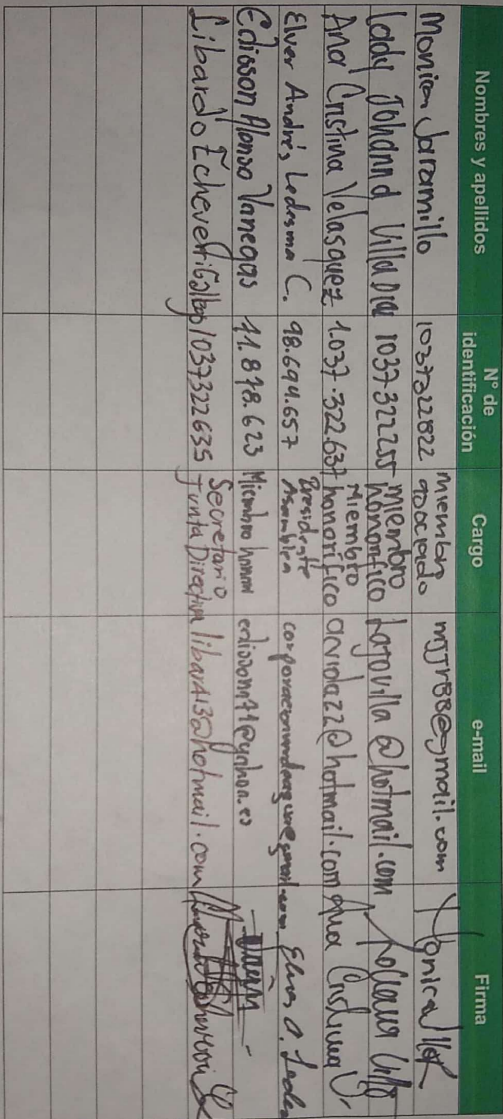 Nombres y apellidos N° de identificación Cargo e-mail Firma
Monica Jaramillo 1037322822 miembro asociado mjjr88@gmail.com
Leidy Johanna Villa 1037322255 miembro honorifico Lajovilla@hotmail.com
Ana Cristina Velasquez 1.037.322.637 Miembro honorífico arvidazz@hotmail.com Ana Cristina V.
Elver Andrés Ledesma C. 98.694.657 Presidente Asamblea Elver A. Ledes
Edisson Alonso Vanegas 71.878.623 Miembro honora edisonn71@yahoo.es
Libardo Echeverri Gallego 1037322635 Secretario Junta Directiva libar413@hotmail.com